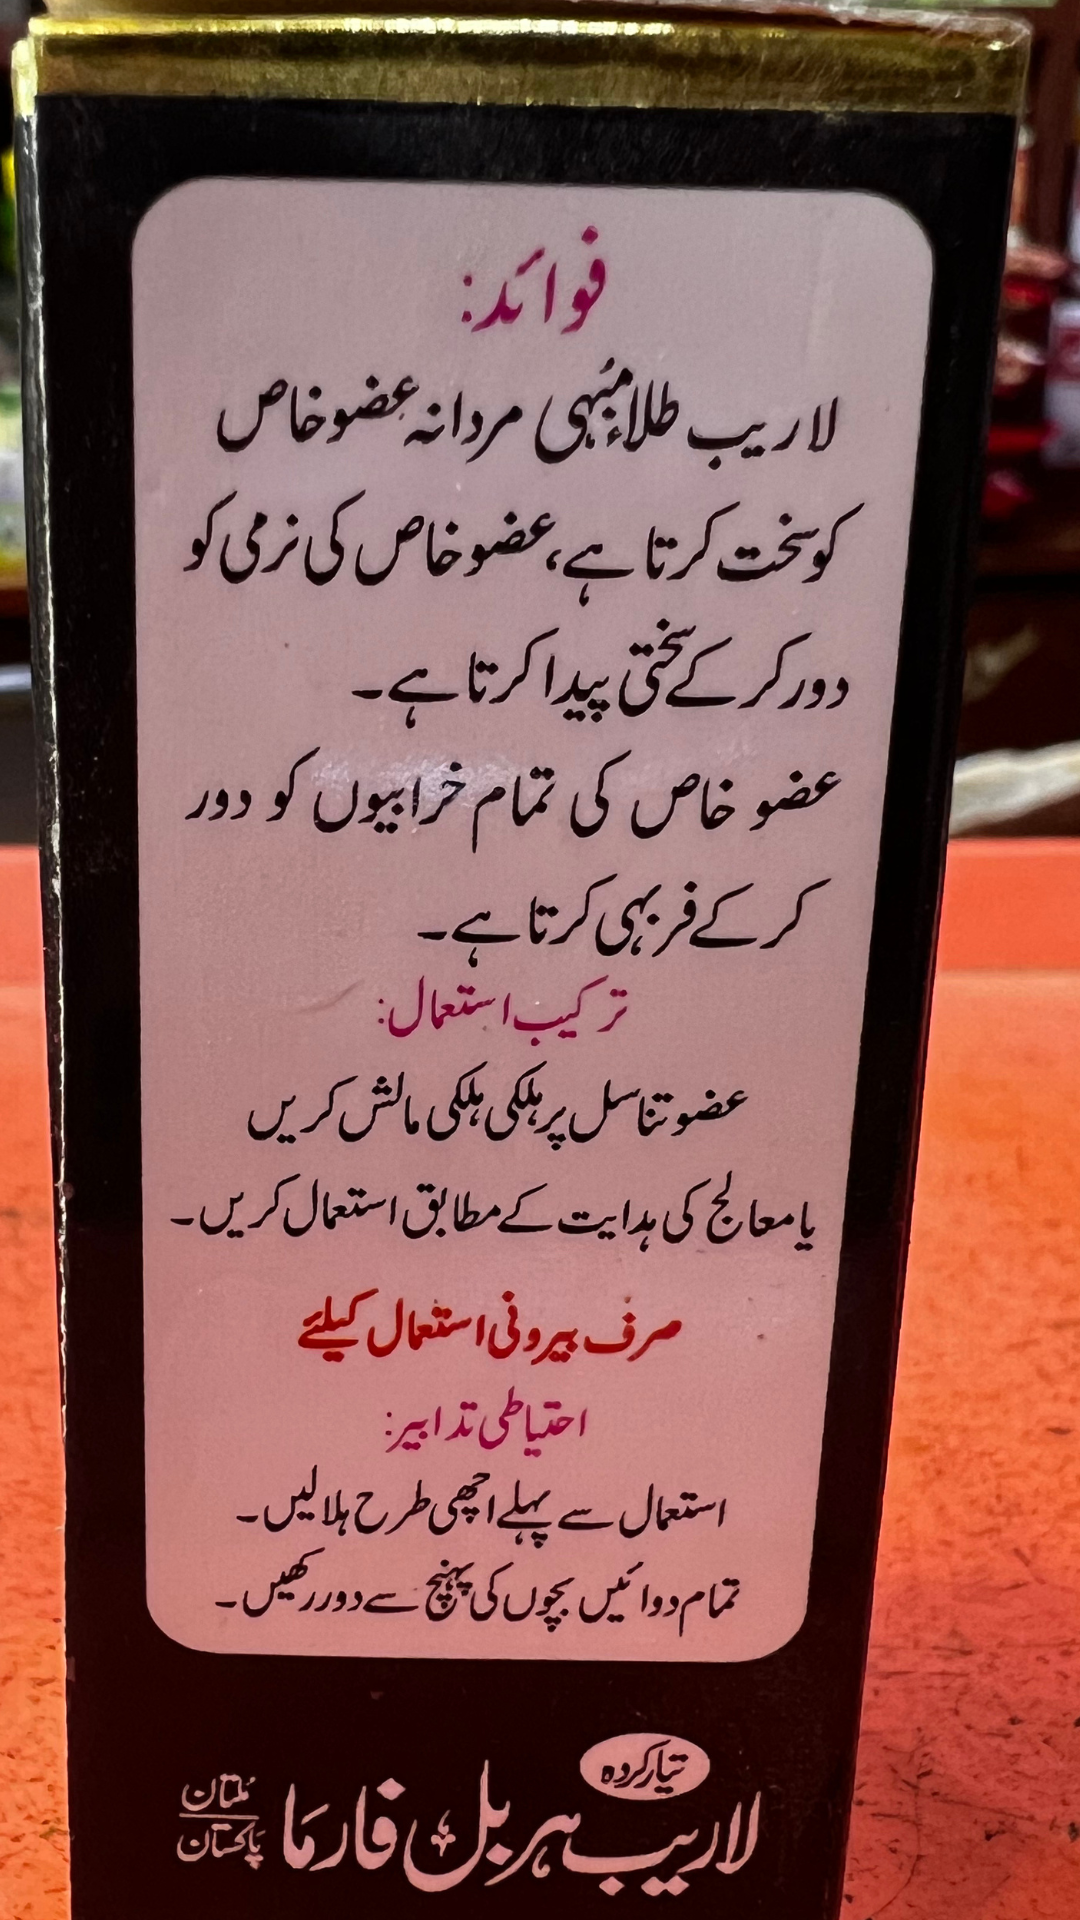 فوائد:
لاریب طلاء مُبہی مردانہ عضو خاص
کو سخت کرتا ہے، عضو خاص کی نرمی کو
دور کر کے سختی پیدا کرتا ہے۔
عضو خاص کی تمام خرابیوں کو دور
کر کے فربہی کرتا ہے۔
ترکیب استعمال:
عضو تناسل پر ہلکی ہلکی مالش کریں
یا معالج کی ہدایت کے مطابق استعمال کریں۔
صرف بیرونی استعمال کیلئے
احتیاطی تدابیر:
استعمال سے پہلے اچھی طرح ہلا لیں۔
تمام دوائیں بچوں کی پہنچ سے دور رکھیں۔
تیار کردہ
لاریب ہربل فارما مُلتان پاکستان